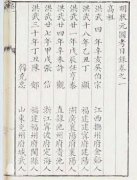 明狀元圖考目錄卷之一
洪武四年辛亥吳伯宗 江西撫州府金谿
洪武十八年乙丑丁顯 福建建寧府建陽
洪武廿一年戊辰任亨泰 湖廣襄陽府襄陽
洪武廿四年辛未許觀 直隸池州府貴池
洪武廿七年甲戌張信 浙江寧波府定海
洪武三十年丁丑陳 福建福州府閩縣人
韓克忠 山東東昌府武城人